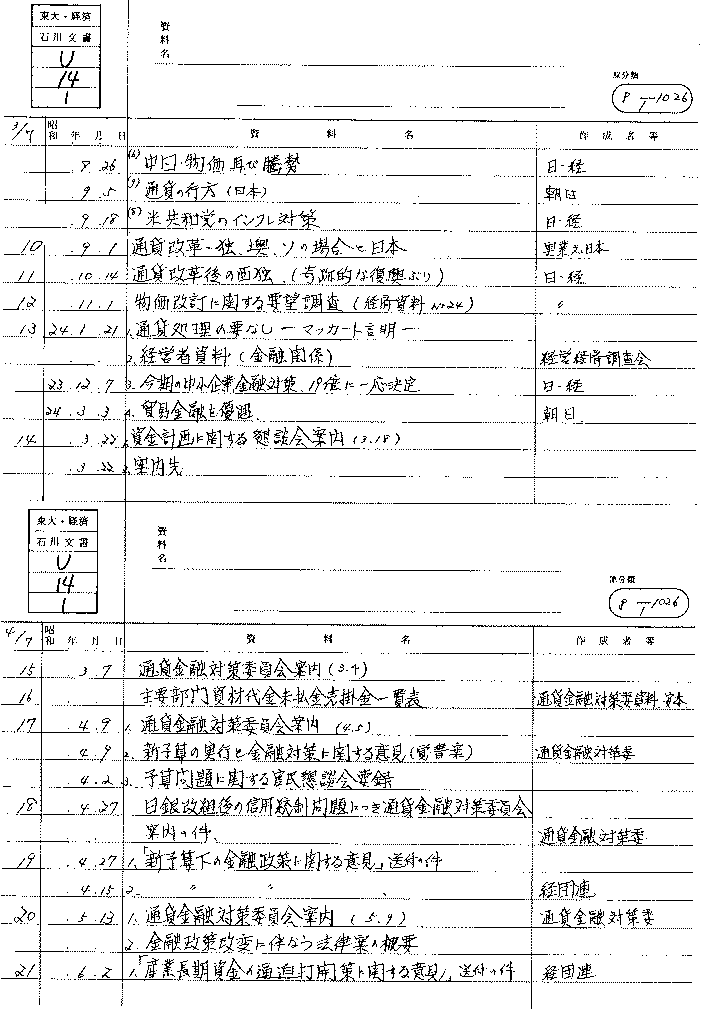 東大・経済
石川文書
U
14
1
資料名
原分類
P-T-1026
3/7 昭和 年 月 日 資 料 名 作成者等
9 26 (6) 中日・物価再び騰勢 日・経
9 5 (7) 通貨の行方(日本) 朝日
9 18 (8) 米共和党のインフレ対策 日・経
10 9 1 通貨改革・独、墺、ソの場合と日本 実業之日本
11 10 14 通貨改革後の西独、(奇跡的な復興ぶり) 日・経
12 11 1 物価改訂に関する要望調査(経済資料 No 24) 〃
13 24 1 21 1. 通貨処理の要なし ーマッカート言明ー
2. 経営者資料(金融関係) 経営経済調査会
23 12 7 3. 今期の中小企業金融対策、19億に一応決定 日・経
24 3 3 4. 貿易金融を優遇 朝日
14 3 22 1. 資金計画に関する懇談会案内(3.18)
3 22 2. 案内先
東大・経済
石川文書
U
14
1
資料名
原分類
P-T-1026
4/7 昭和 年 月 日 資 料 名 作成者等
15 3 7 通貨金融対策委員会案内(3.4)
16 主要部門資材代金未払金売掛金一覧表 通貨金融対策委資料
17 4 9 1. 通貨金融対策委員会案内 (4.5)
4 9 2. 新予算の実行と金融対策に関する意見 通貨金融対策委
4 2 3. 予算問題に関する官民懇談会要録
18 4 27 日銀改組後の信用統制問題につき通貨金融対策委員会
案内の件、 通貨金融対策委
19 4 27 1.「新予算下の金融政策に関する意見」送付の件
4 15 2. 〃 〃 、 経団連
20 5 13 1. 通貨金融対策委員会案内 (5.9) 通貨金融対策委
2. 金融政策改変に伴なう法律案の概要
21 6 2 1.「産業長期資金の逼迫打開策に関する意見」送付の件 経団連